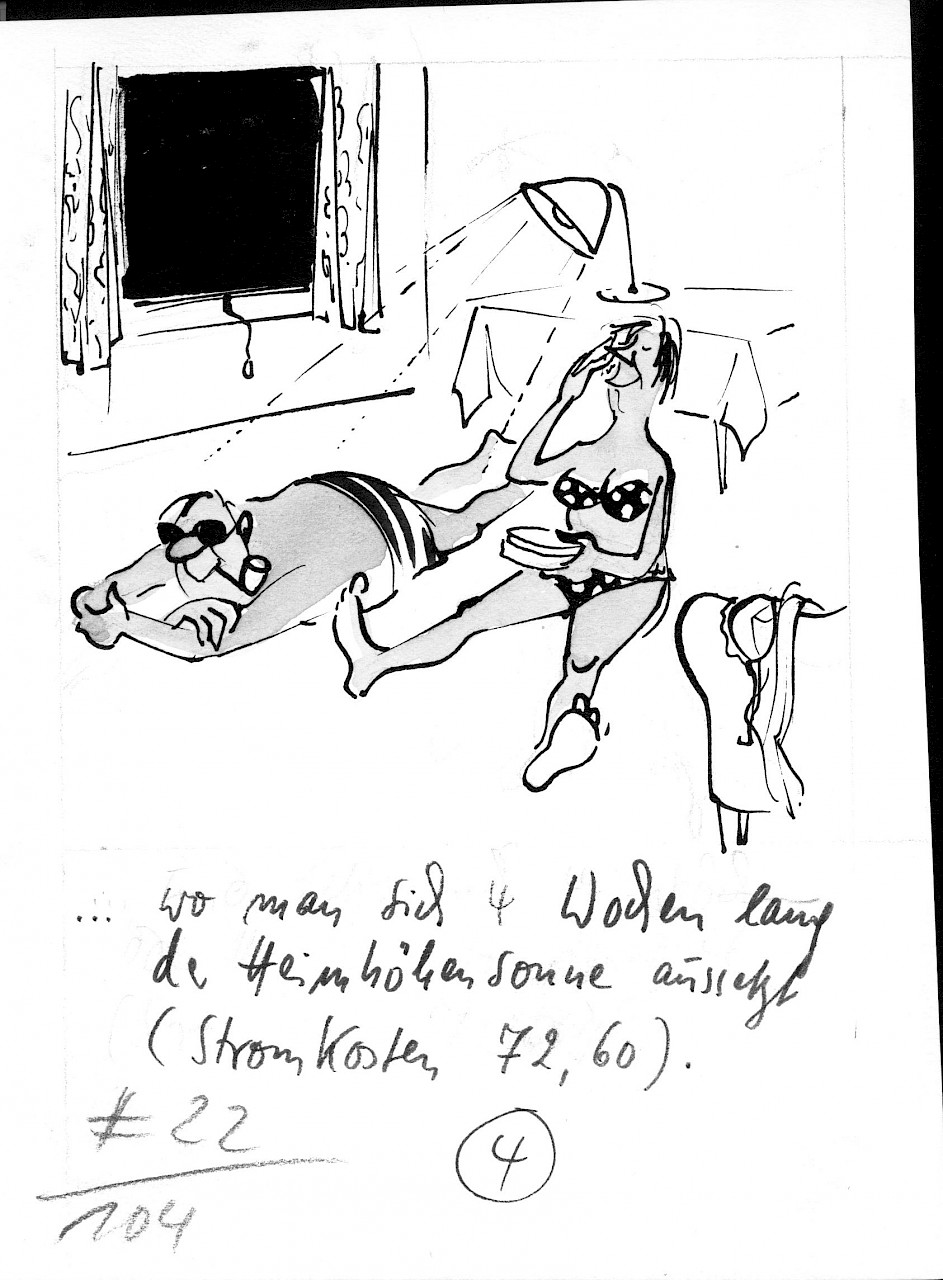 ... wo man sich 4 Wochen lang
der Heimhöhensonne aussetzt
(Stromkosten 72,60).
# 22
104
4